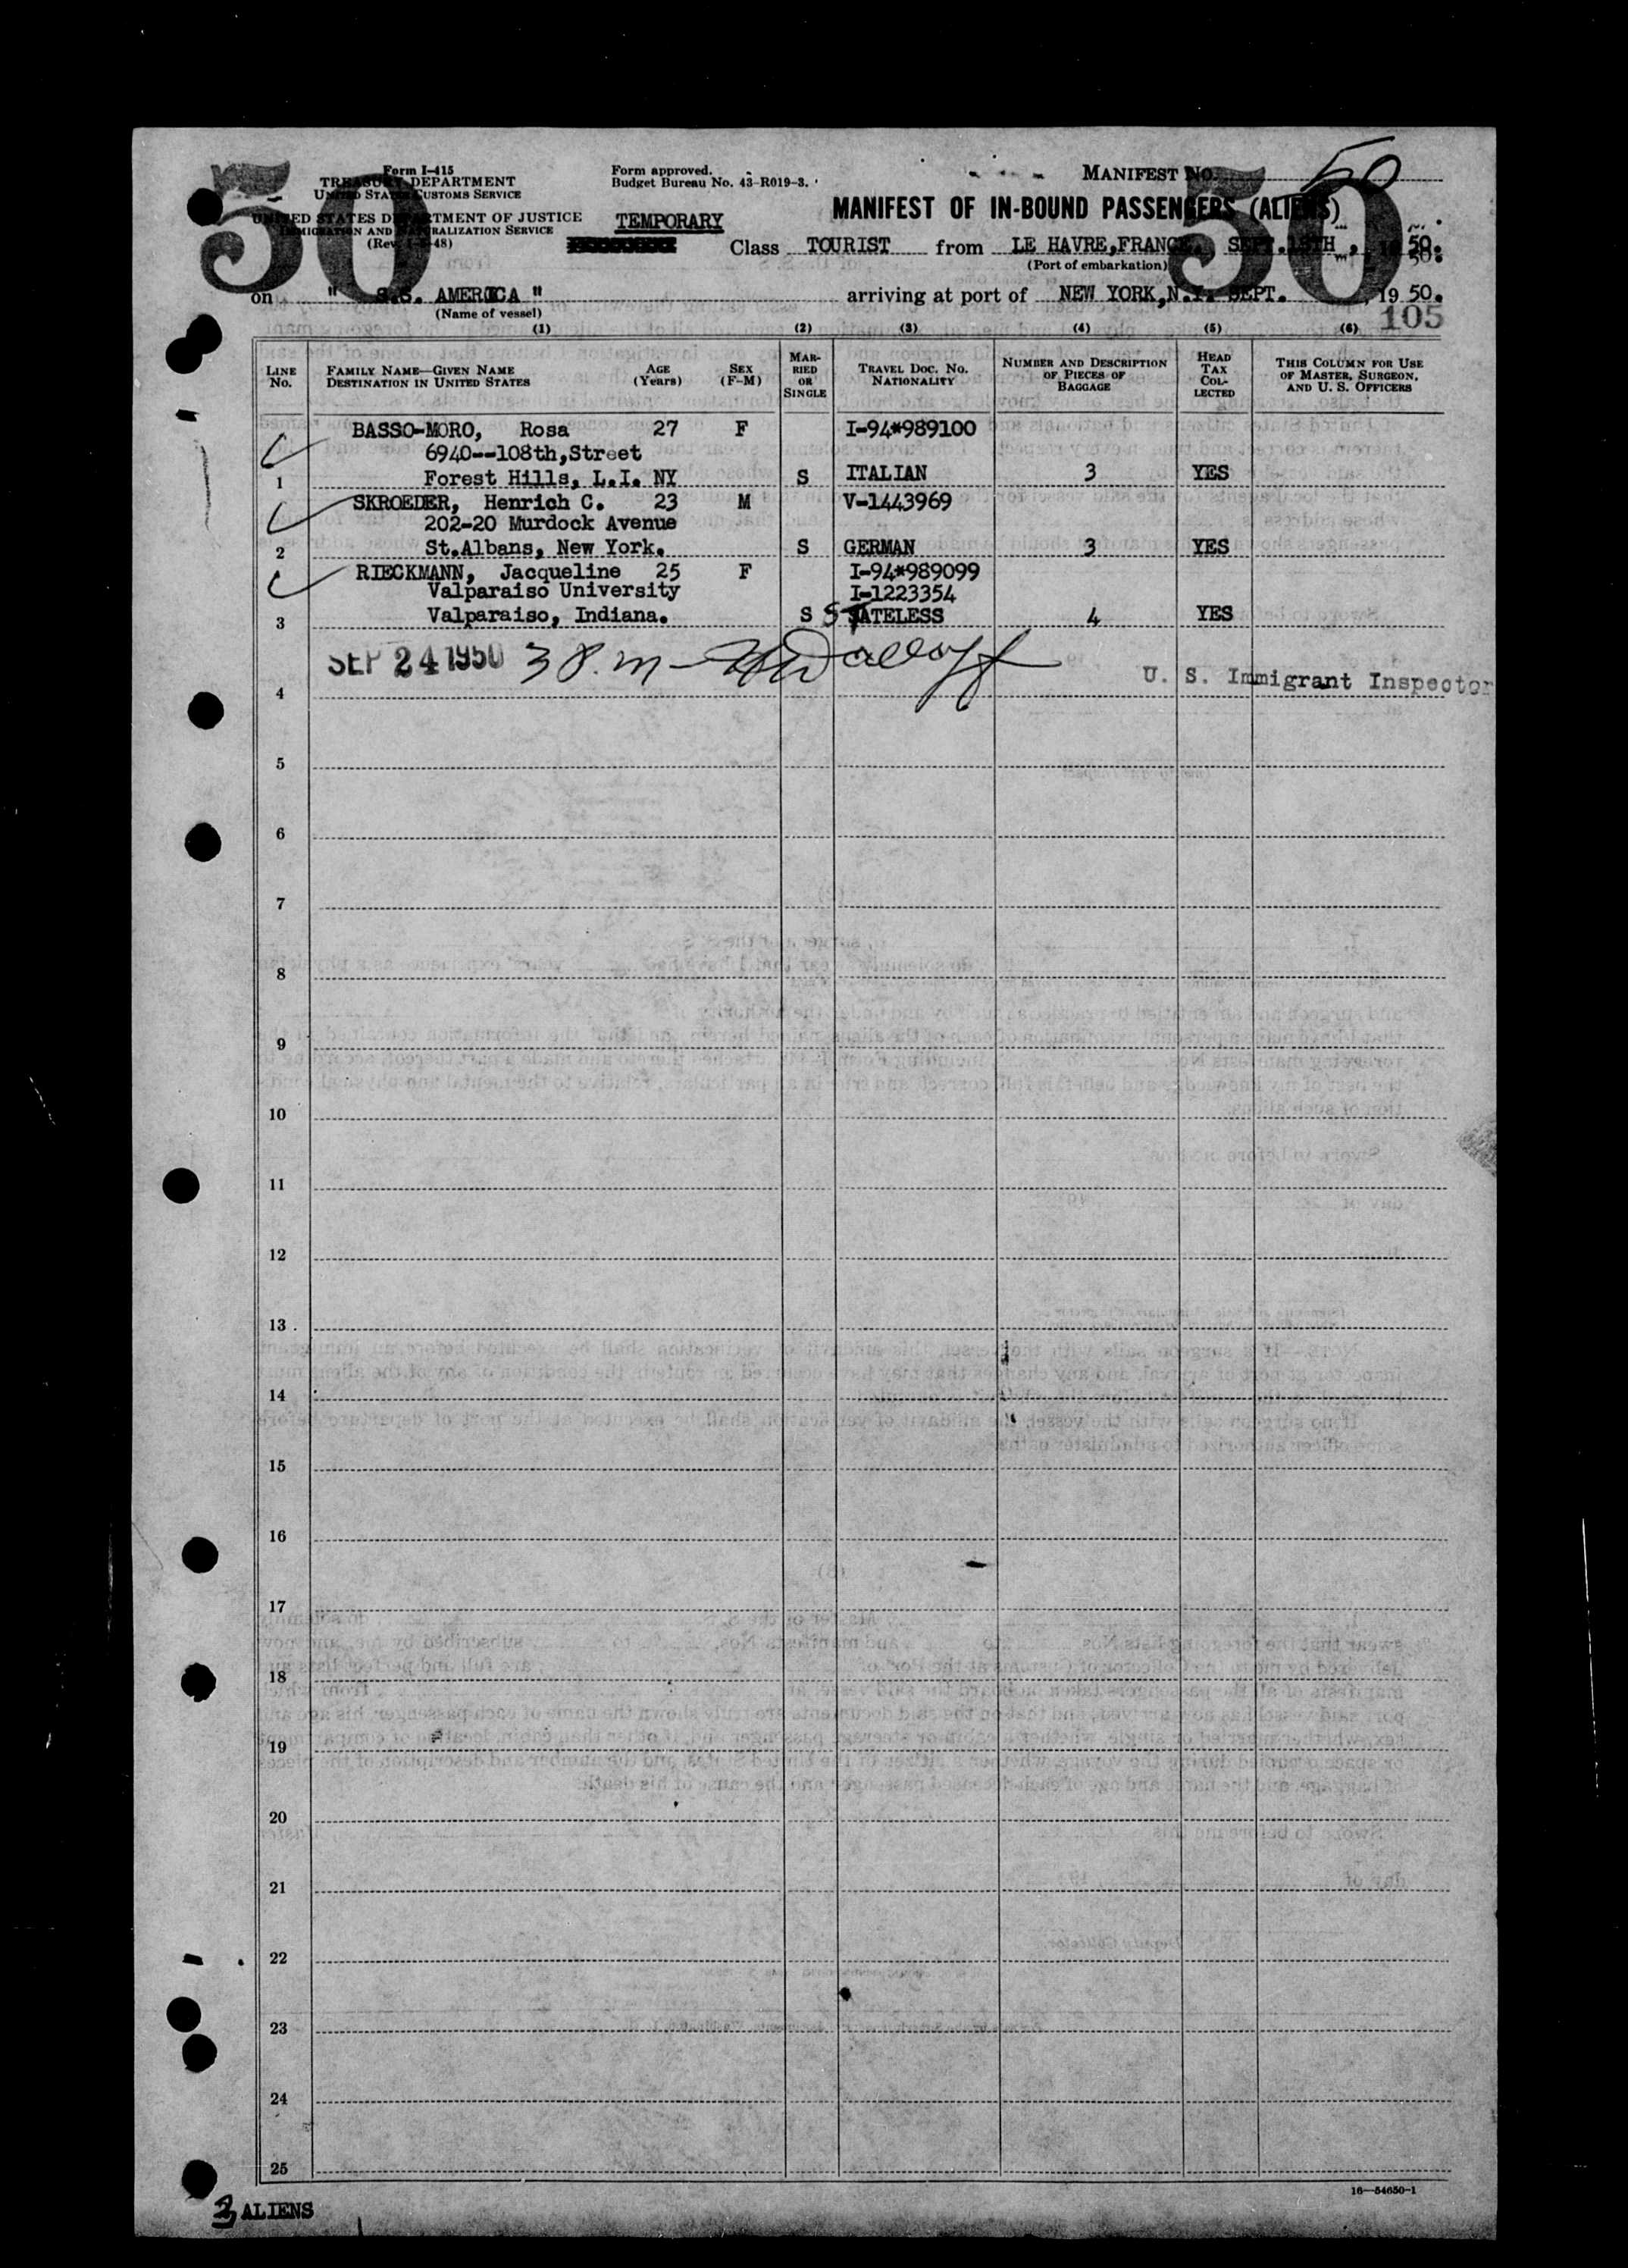 50
50
Form I-415
TREASURY DEPARTMENT
UNITED STATES CUSTOMS SERVICE
UNITED STATES DEPARTMENT OF JUSTICE
IMMIGRATION AND NATURALIZATION SERVICE
Form approved.
Budget Bureau No. 43-R019-3.
MANIFEST No. 50
MANIFEST OF IN-BOUND PASSENGERS (ALIENS)
TEMPORARY
Class TOURIST from LE HAVRE,FRANCE, SEPT. , 1950.
(Port of embarkation)
on " S.S. AMERICA " arriving at port of NEW YORK,N.Y. SEPT. , 1950.
(Name of vessel)
105
(1) (2) (3) (4) (5) (6)
LINE No. FAMILY NAME—GIVEN NAME DESTINATION IN UNITED STATES AGE (Years) SEX (F-M) MARRIED OR SINGLE TRAVEL DOC. NO. NATIONALITY NUMBER AND DESCRIPTION OF PIECES OF BAGGAGE HEAD TAX COLLECTED THIS COLUMN FOR USE OF MASTER, SURGEON, AND U. S. OFFICERS
BASSO-MORO, Rosa 27 F I-94*989100
6940--108th,Street
1 Forest Hills, L.I. NY S ITALIAN 3 YES
SKROEDER, Henrich C. 23 M V-1443969
202-20 Murdock Avenue
2 St.Albans, New York. S GERMAN 3 YES
RIECKMANN, Jacqueline 25 F I-94*989099
Valparaiso University I-1223354
3 Valparaiso, Indiana. S STATELESS 4 YES
SEP 24 1950 3 P.m
U. S. Immigrant Inspector
4
5
6
7
8
9
10
11
12
13
14
15
16
17
18
19
20
21
22
23
24
25
16—54650-1
3 ALIENS